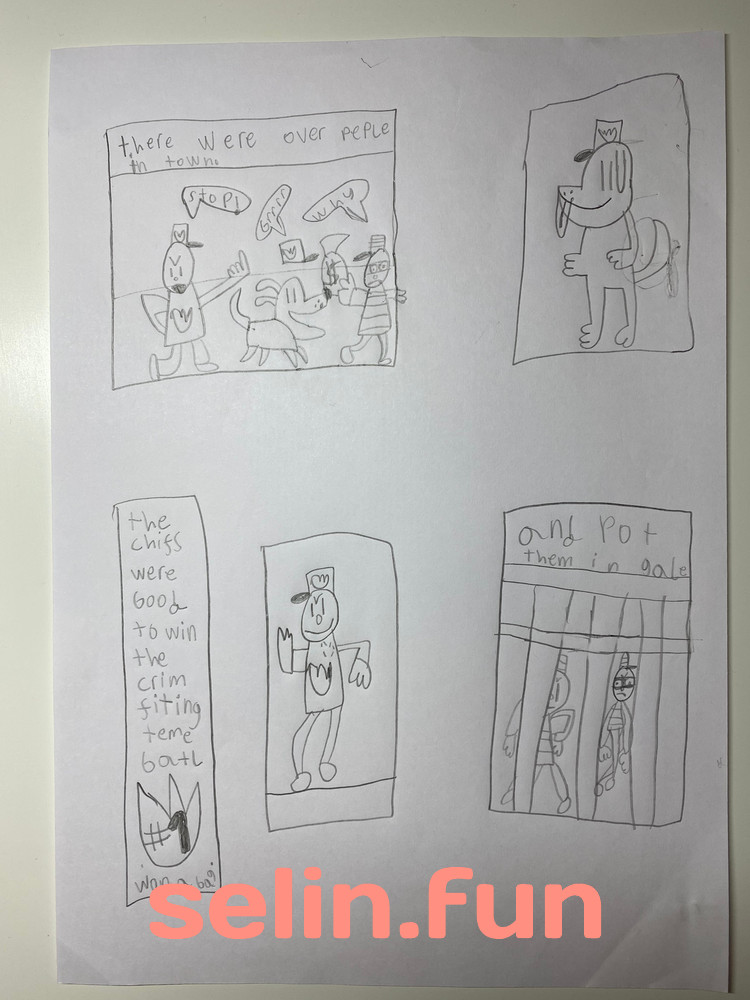 there were over peple
in town.
stop!
Grrrr
why
the
chifs
were
good
to win
the
crim
fiting
teme
batl
#1
and Pot
them in gale
selin.fun